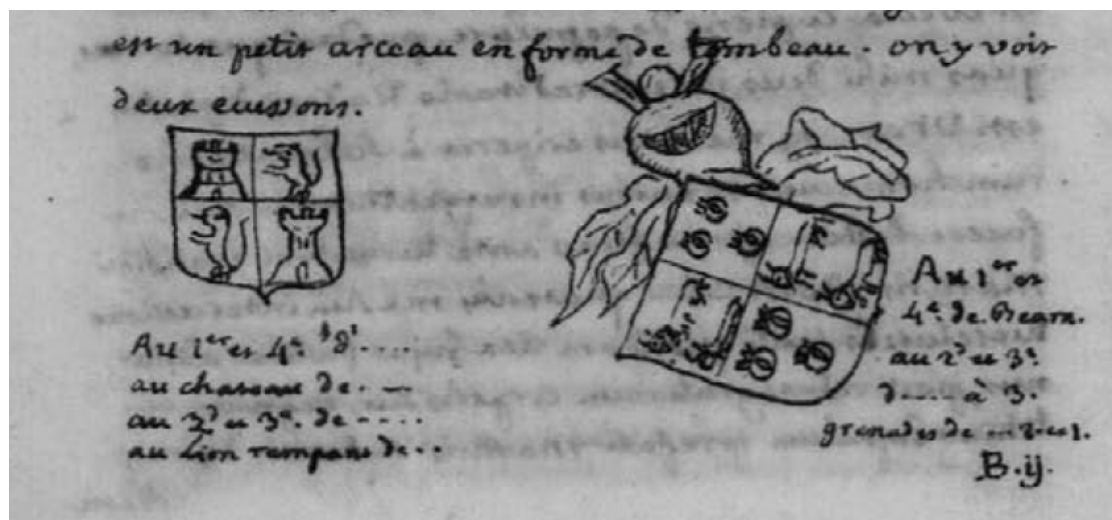 est un petit arceau en forme de tombeau. on y voit
deux ecussons.
Au 1er et 4e. d'....
au chateau de. —
au 2d et 3e. de ....
au Lion rampant de..
Au 1er et
4e. de Bearn.
au 2d et 3e.
d.... à 3.
grenades de ... 2. et 1.
B. ij.